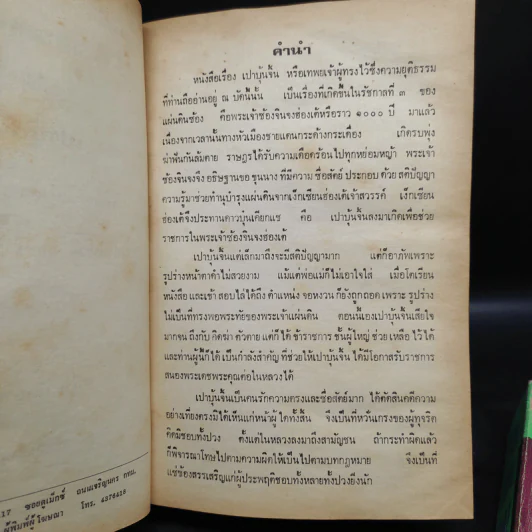 คำนำ
หนังสือเรื่อง เปาบุ้นจิ้น หรือเทพยเจ้าผู้ทรงไว้ซึ่งความยุติธรรม
ที่ท่านถืออ่านอยู่ ณ บัดนี้นั้น เป็นเรื่องที่เกิดขึ้นในรัชกาลที่ ๓ ของ
แผ่นดินซ้อง คือพระเจ้าซ้องจินจงฮ่องเต้หรือราว ๑๐๐๐ ปี มาแล้ว
เนื่องจากเวลานั้นทางหัวเมืองชายแดนกระด้างกระเดื่อง เกิดรบพุ่ง
ฆ่าฟันกันล้มตาย ราษฎรได้รับความเดือดร้อนไปทุกหย่อมหญ้า พระเจ้า
ซ้องจินจงจึง อธิษฐานขอ ขุนนาง ที่มีความ ซื่อสัตย์ ประกอบ ด้วย สติปัญญา
ความรู้มาช่วยทำนุบำรุงแผ่นดินจากเง็กเซียนฮ่องเต้เจ้าสวรรค์ เง็กเซียน
ฮ่องเต้จึงประทานดาวบุ้นเคียกแช คือ เปาบุ้นจิ้นลงมาเกิดเพื่อช่วย
ราชการในพระเจ้าซ้องจินจงฮ่องเต้
เปาบุ้นจิ้นแต่เล็กมาถึงจะมีสติปัญญามาก แต่ก็อาภัพเพราะ
รูปร่างหน้าตาดำไม่สวยงาม แม้แต่พ่อแม่ก็ไม่เอาใจใส่ เมื่อโตเรียน
หนังสือ และเข้า สอบไล่ ได้ถึง ตำแหน่ง จอหงวน ก็ยังถูกถอด เพราะ รูปร่าง
ไม่เป็นที่ทรงพอพระทัยของพระเจ้าแผ่นดิน ตอนนี้เองเปาบุ้นจิ้นเสียใจ
มากจน ถึงกับ คิดฆ่า ตัวตาย แต่ก็ ได้ ข้าราชการ ชั้นผู้ใหญ่ ช่วย เหลือ ไว้ ได้
และท่านผู้นี้ก็ได้ เป็นกำลังสำคัญ ที่ช่วยให้เปาบุ้นจิ้น ได้มีโอกาสรับราชการ
สนองพระเดชพระคุณต่อในหลวงได้
เปาบุ้นจิ้นเป็นคนรักความตรงและซื่อสัตย์มาก ได้ตัดสินคดีความ
อย่างเที่ยงตรงมิได้เห็นแก่หน้าผู้ใดทั้งสิ้น จึงเป็นที่หวั่นเกรงของผู้ทุจริต
คิดมิชอบทั้งปวง ตั้งแต่ในหลวงลงมาถึงสามัญชน ถ้ากระทำผิดแล้ว
ก็พิจารณาโทษไปตามความผิดให้เป็นไปตามบทกฎหมาย จึงเป็นที่
แซ่ซ้องสรรเสริญแก่ผู้ประพฤติชอบทั้งหลายทั้งปวงยิ่งนัก
17 ซอยดูเม็กซ์ ถนนเจริญนคร กทม.
ผู้พิมพ์ผู้โฆษณา โทร. 4376418